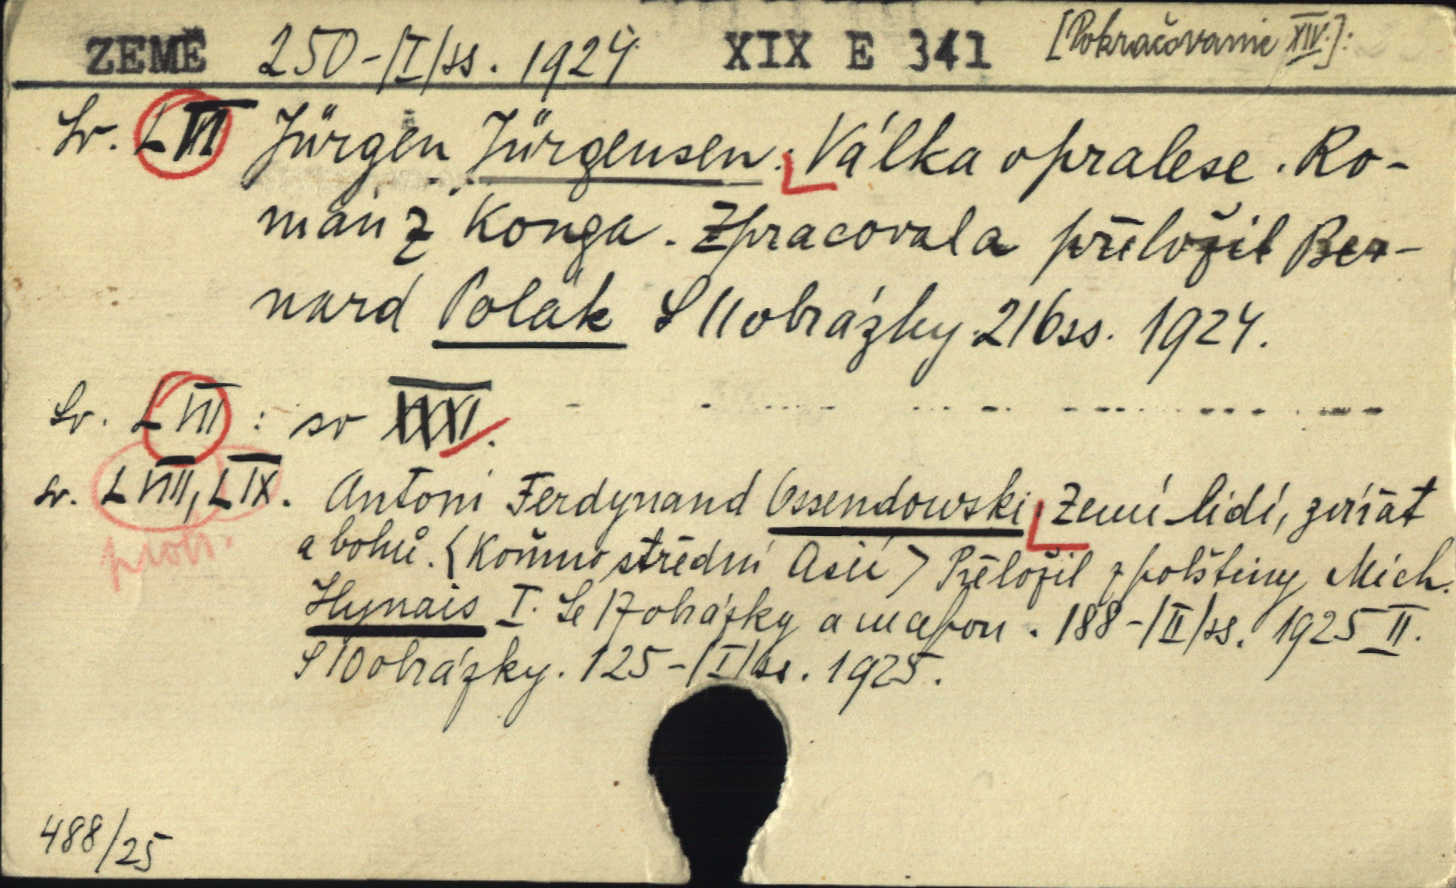 ZEMĚ 250-/I/ss. 1924 XIX E 341 [Pokračovanie XIV.]:
Sv. LVI Jürgen Jürgensen. Válka o prales. Ro-
mán z Konga. Zpracoval a přeložil Ber-
nard Polák S 11 obrázky. 216 ss. 1924.
Sv. LVII : sv XXXI.
sv. LVIII, LIX. Antoni Ferdynand Ossendowski Zemí lidí, zvířat
a bohů. (Koňmo střední Asií) Přeložil z polštiny Mich.
Hynais I. Se 17 obrázky a mapou. 188-/II/ss. 1925 II.
S 10 obrázky. 125-/I/ss. 1925.
488/25